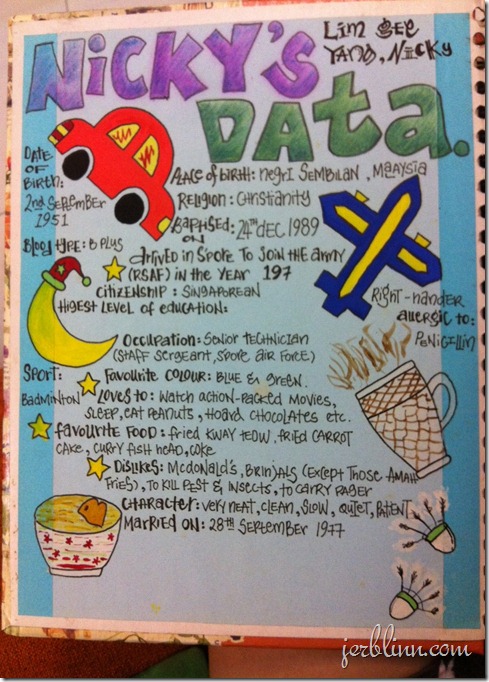 NICKY'S
DATA.
LIM GEE
YANG, NICKY
DATE
OF
BIRTH:
2nd SEPTEMBER
1951
PLACE OF BIRTH: NEGRI SEMBILAN, MAAYSIA
RELIGION: CHRISTIANITY
BAPTISED: 24TH DEC 1989
ON
BLOOD TYPE: B PLUS
ARRIVED IN S'PORE TO JOIN THE ARMY
(RSAF) IN THE YEAR 197
CITIZENSHIP: SINGAPOREAN
HIGEST LEVEL OF EDUCATION:
RIGHT-HANDER
ALLERGIC TO:
PENICILLIN
OCCUPATION: SENIOR TECHNICIAN
(STAFF SERGEANT, S'PORE AIR FORCE)
SPORT:
BADMINTON
FAVOURITE COLOUR: BLUE & GREEN.
LOVES TO: WATCH ACTION-PACKED MOVIES,
SLEEP, EAT PEANUTS, HOARD CHOCOLATES etc.
FAVOURITE FOOD: FRIED KWAY TEOW, FRIED CARROT
CAKE, CURRY FISH HEAD, COKE
DISLIKES: MCDONALD'S, BRINJALS (EXCEPT THOSE AMAH
FRIES), TO KILL PEST & INSECTS, TO CARRY PAGER
CHARACTER: VERY NEAT, CLEAN, SLOW, QUIET, PATENT
MARRIED ON: 28TH SEPTEMBER 1977
jerblinn.com